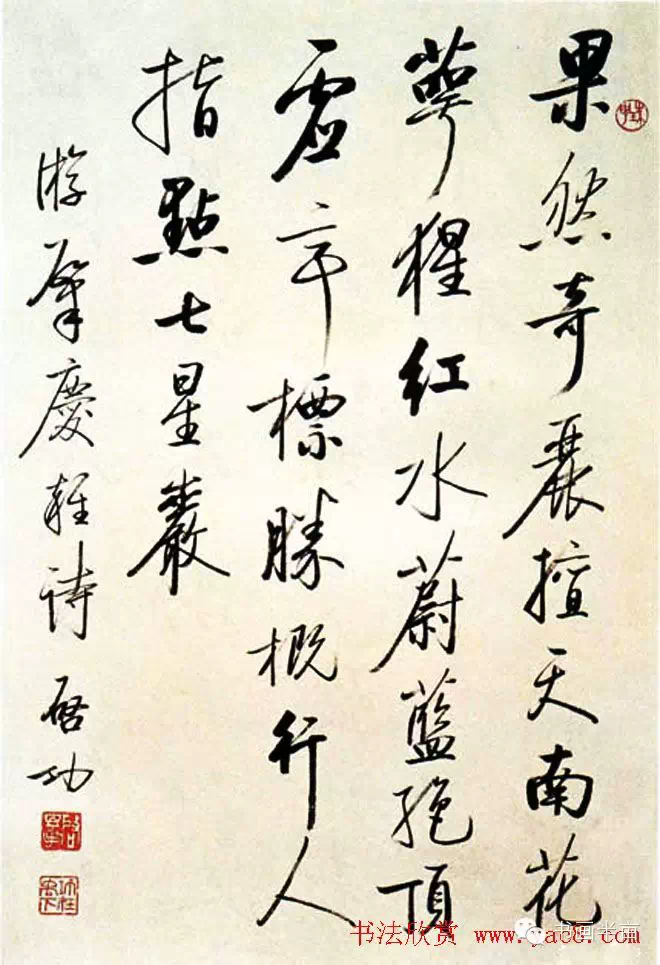 果然奇麗擅天南花
萼猩紅水蔚藍絕頂
虛亭標勝概行人
指點七星巖
游肇慶雜詩 啓功
书法欣赏 www.yac8.com